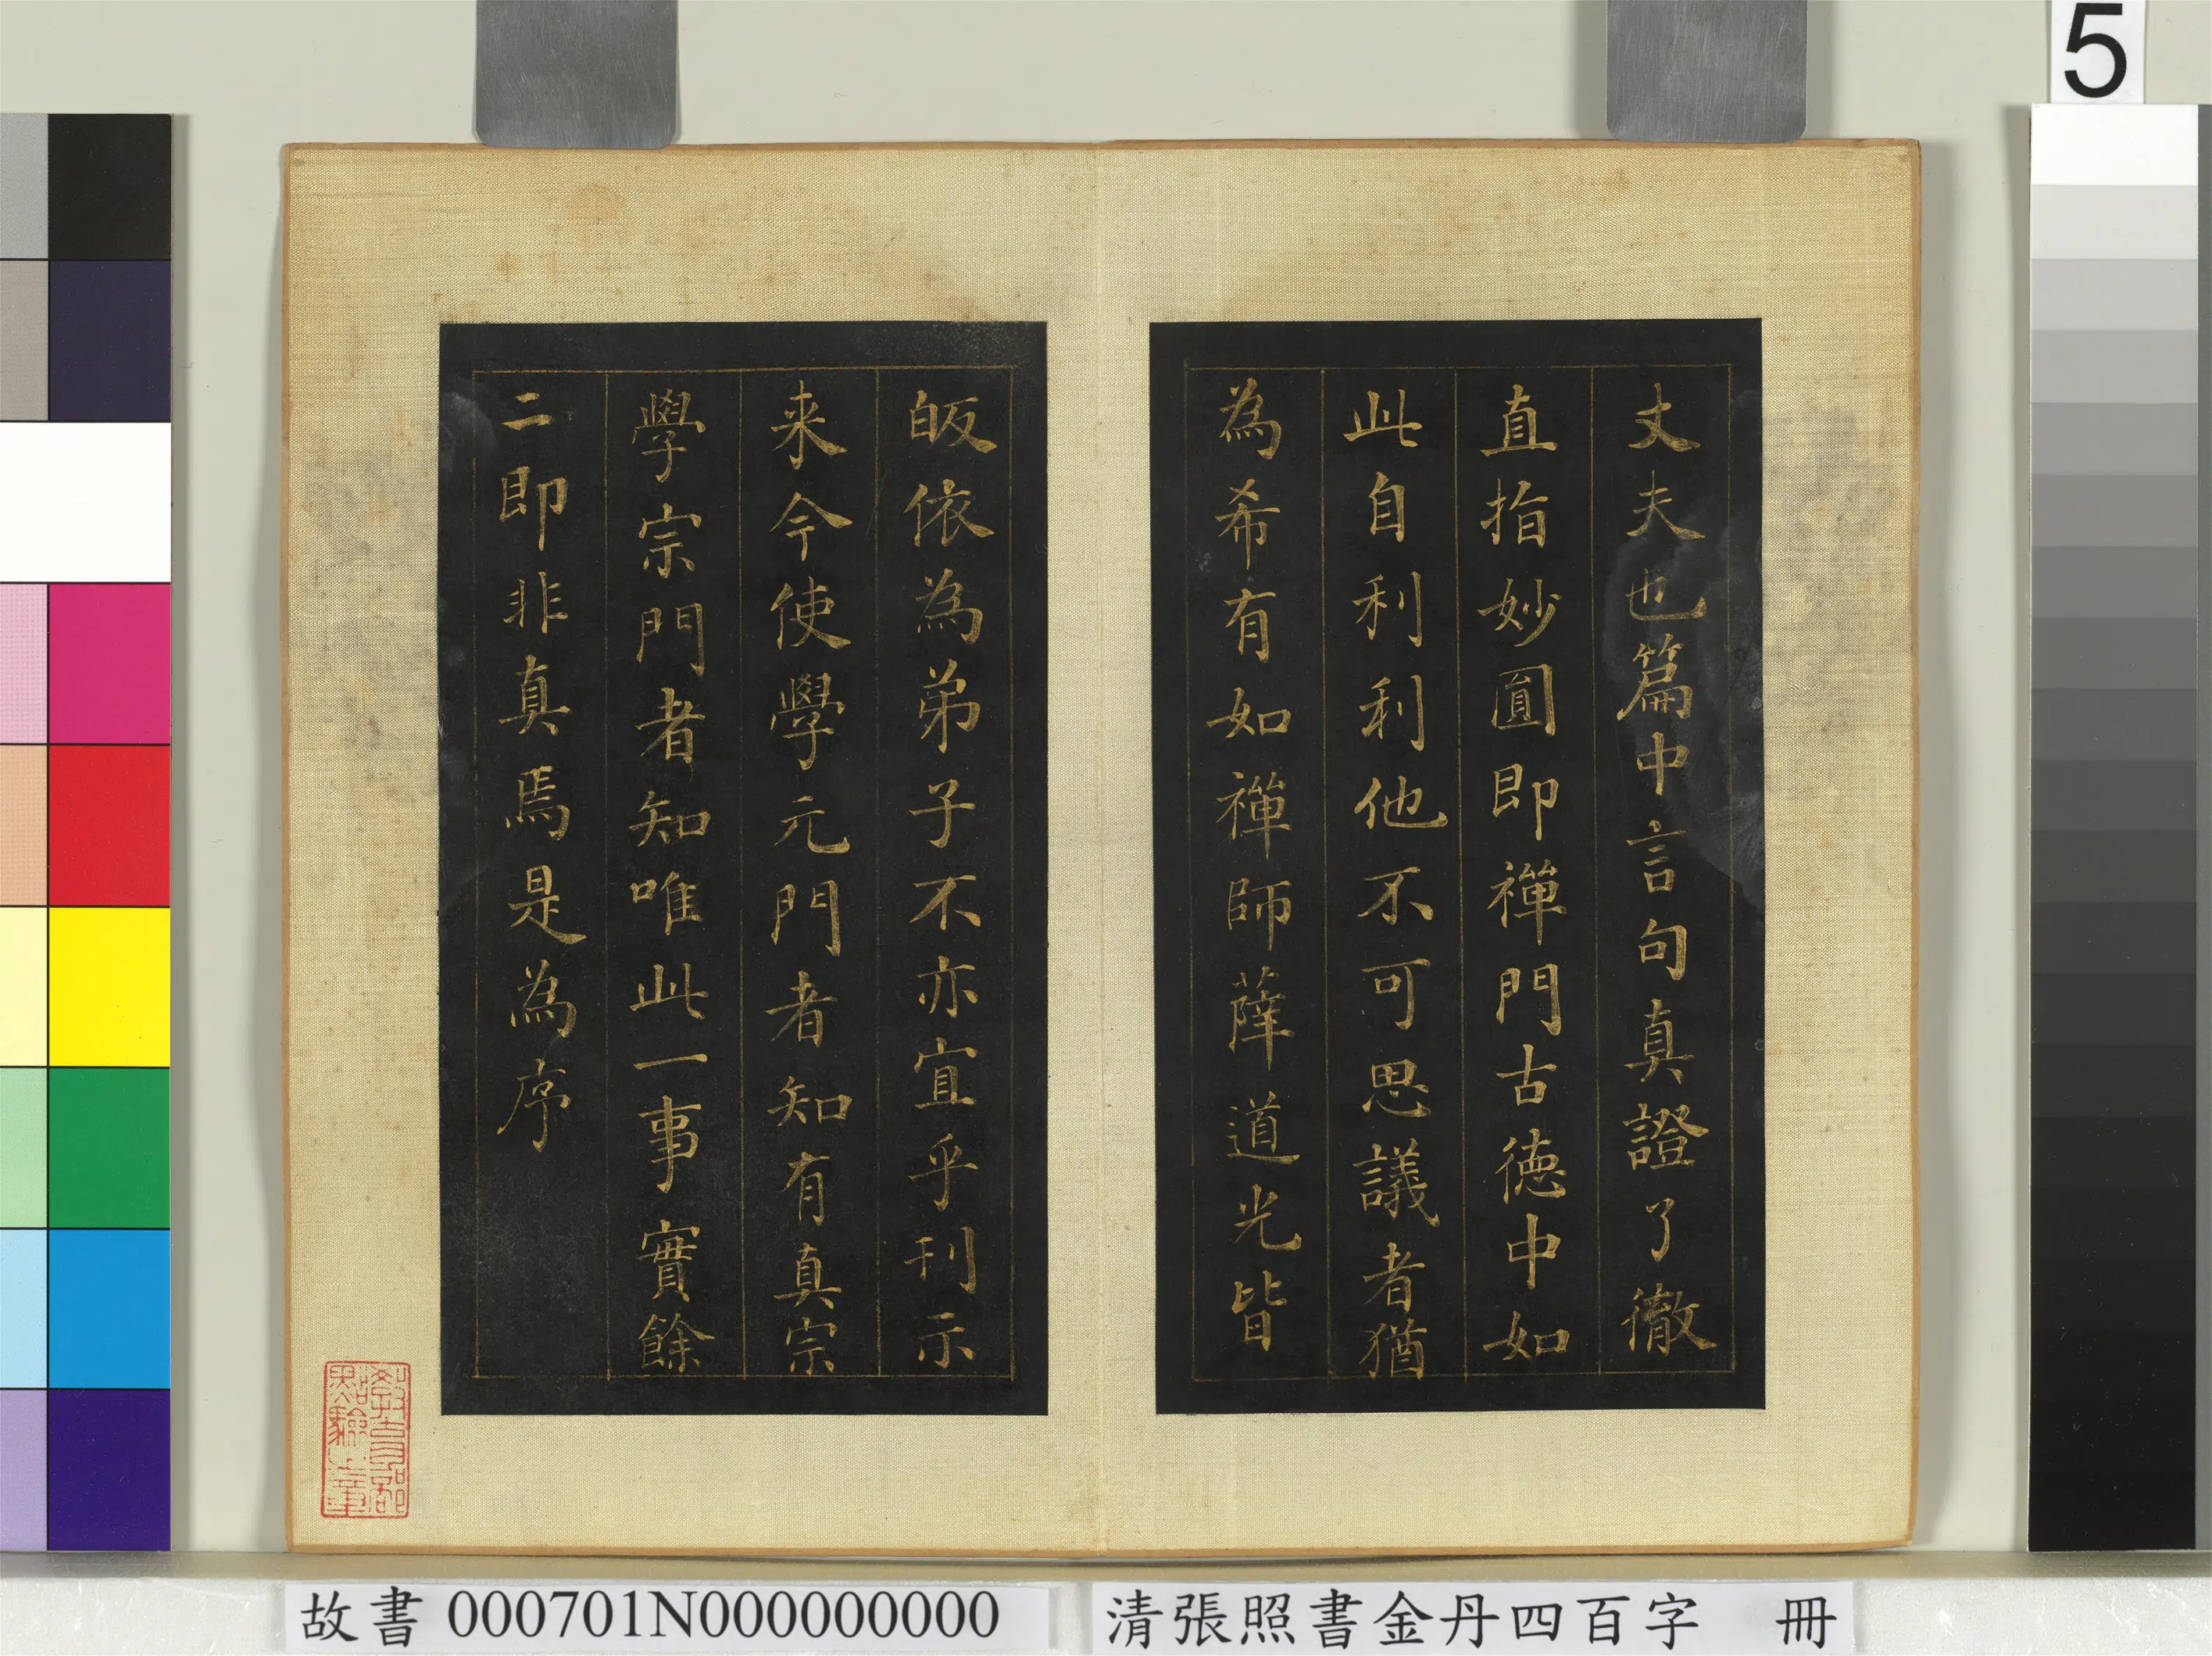 5
丈夫也篇中言句真證了徹
直指妙圓即禪門古徳中如
此自利利他不可思議者猶
為希有如禪師薛道光皆
皈依為弟子不亦宜乎刊示
来今使學元門者知有真宗
學宗門者知唯此一事實餘
二即非真焉是為序
教育部
點驗之章
故書 000701N000000000
清張照書金丹四百字 冊